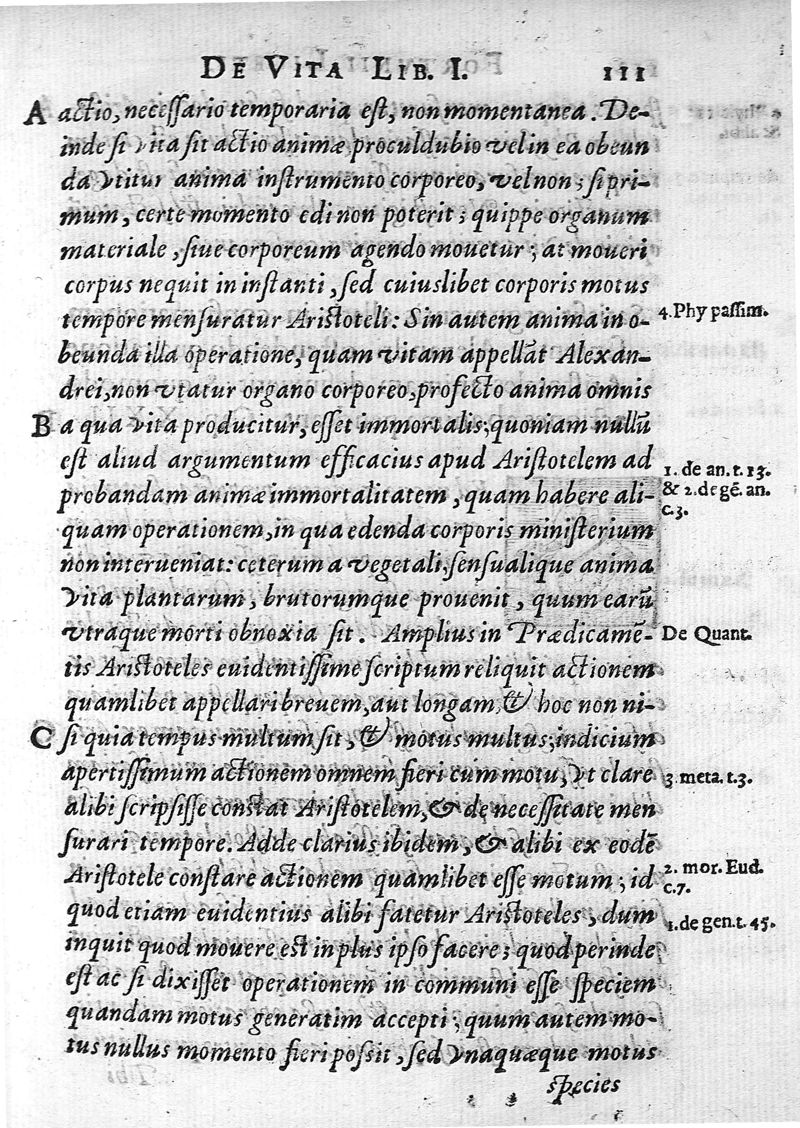 DE VITA LIB. I. 111
A actio, necessario temporaria est, non momentanea. De-
inde si vita sit actio animæ proculdubio vel in ea obeun
da vtitur anima instrumento corporeo, vel non; si pri-
mum, certe momento edi non poterit; quippe organum
materiale, siue corporeum agendo mouetur; at moueri
corpus nequit in instanti, sed cuiuslibet corporis motus
tempore mensuratur Aristoteli: Sin autem anima in o- 4. Phy passim.
beunda illa operatione, quam vitam appellãt Alexan-
drei, non vtatur organo corporeo, profecto anima omnis
B a qua vita producitur, esset immortalis; quoniam nullũ
est aliud argumentum efficacius apud Aristotelem ad 1. de an. t. 13.
probandam animæ immortalitatem, quam habere ali- & 2. de gẽ. an.
c. 3.
quam operationem, in qua edenda corporis ministerium
non interueniat: ceterum a vegetali, sensualique anima
vita plantarum, brutorumque prouenit, quum earũ
vtraque morti obnoxia sit. Amplius in Prædicamẽ- De Quant.
tis Aristoteles euidentissime scriptum reliquit actionem
quamlibet appellari breuem, aut longam, & hoc non ni-
C si quia tempus multum sit, & motus multus; indicium
apertissimum actionem omnem fieri cum motu, vt clare 3 meta. t. 3.
alibi scripsisse constat Aristotelem, & de necessitate men
surari tempore. Adde clarius ibidem, & alibi ex eodẽ
Aristotele constare actionem quamlibet esse motum; id 2. mor. Eud.
c. 7.
quod etiam euidentius alibi fatetur Aristoteles, dum 1. de gen. t. 45.
inquit quod mouere est in plus ipso facere; quod perinde
est ac si dixisset operationem in communi esse speciem
quandam motus generatim accepti; quum autem mo-
tus nullus momento fieri possit, sed vnaquæque motus
species